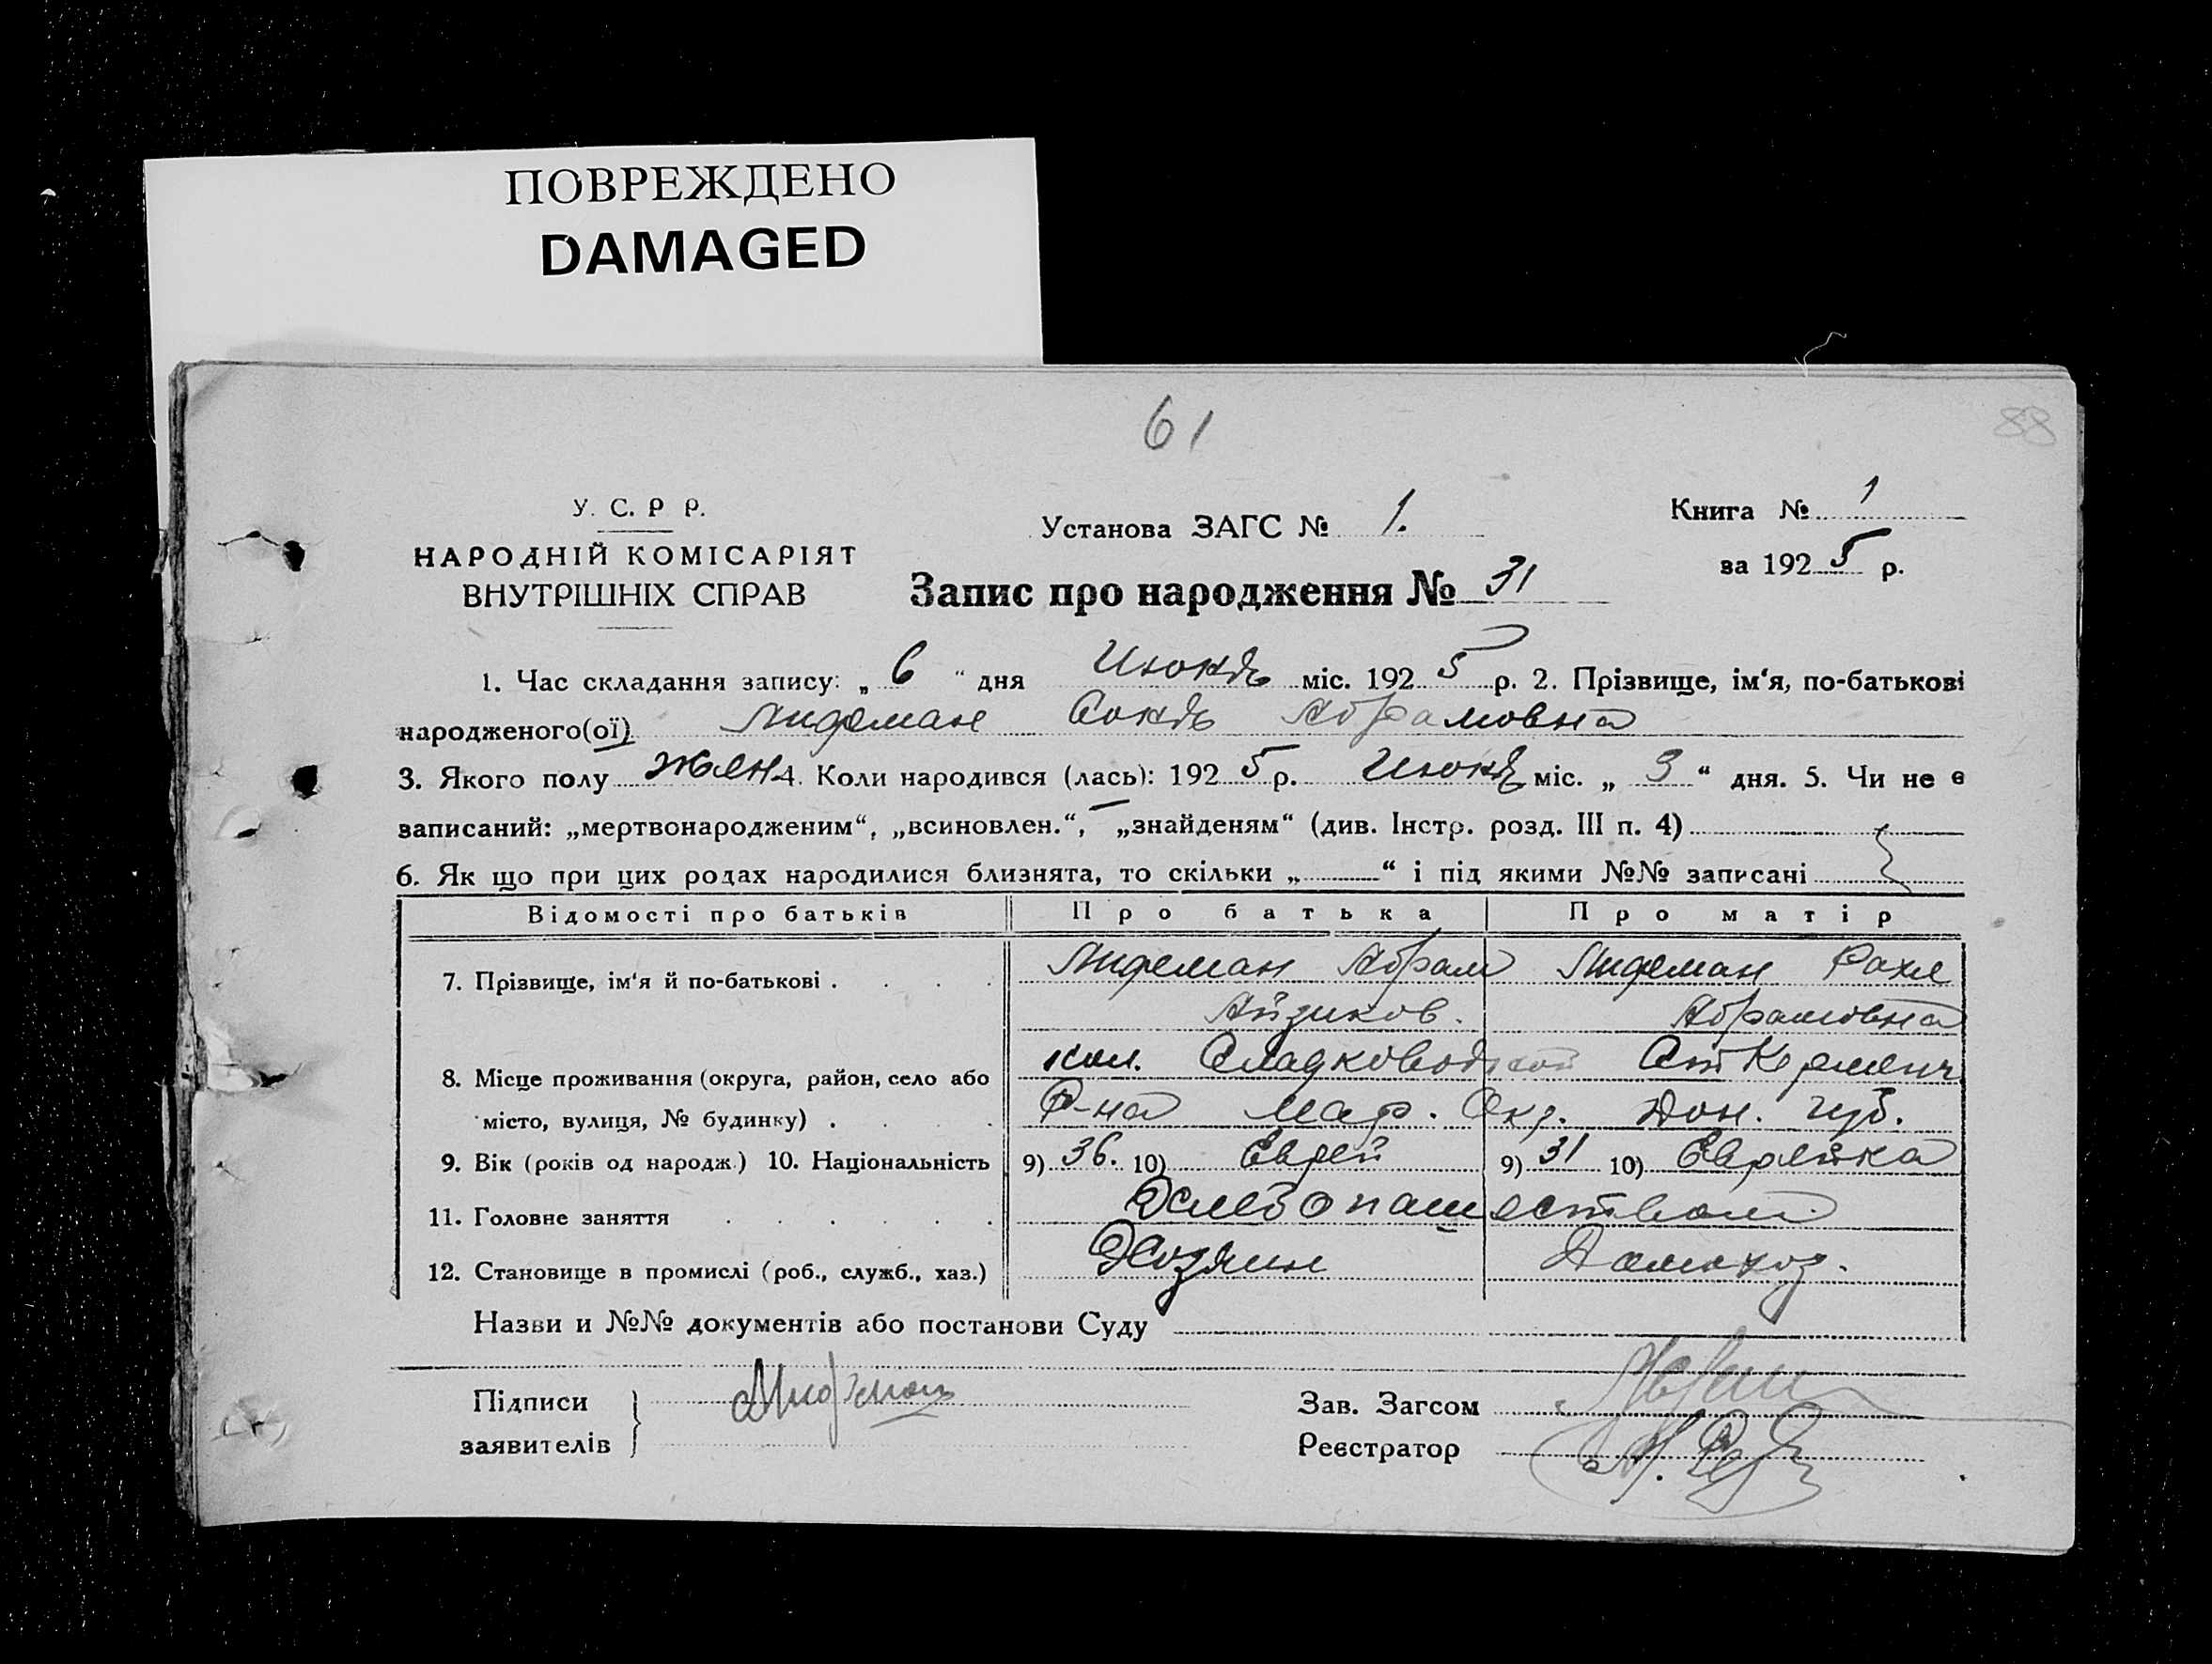 ПОВРЕЖДЕНО
DAMAGED
61
88
У. С. Р Р.
НАРОДНІЙ КОМІСАРІЯТ
ВНУТРІШНІХ СПРАВ
Установа ЗАГС № 1.
Книга № 1
за 1925 р.
Запис про народження № 31
1. Час складання запису: „ 6 “ дня Июня міс. 1925 р. 2. Прізвище, ім‘я, по-батькові
народженого(ої) Лидеман Соня Абрамовна
3. Якого полу жен 4. Коли народився (лась): 1925 р. Июня міс. „ 3 “ дня. 5. Чи не є
записаний: „мертвонародженим“, „всиновлен.“, „знайденям“ (див. Інстр. розд. III п. 4)
6. Як що при цих родах народилися близнята, то скільки „ “ і під якими №№ записані
Відомості про батьків Про батька Про матір
7. Прізвище, ім‘я й по-батькові . Лидеман Абрам Лидеман Рахе
Айзиков. Абрамовна
8. Місце проживання (округа, район, село або кол. Сладководской Ст Керменч
місто, вулиця, № будинку) . Р-на Мар. Окр. Дон. губ.
9. Вік (років од народж.) 10. Національність 9) 36. 10) Еврей 9) 31 10) Еврейка
11. Головне заняття Хлебопашеством
12. Становище в промислі (роб., служб., хаз.) Хозяин Домохоз.
Назви и №№ документів або постанови Суду
Підписи
заявителів
Зав. Загсом
Реєстратор